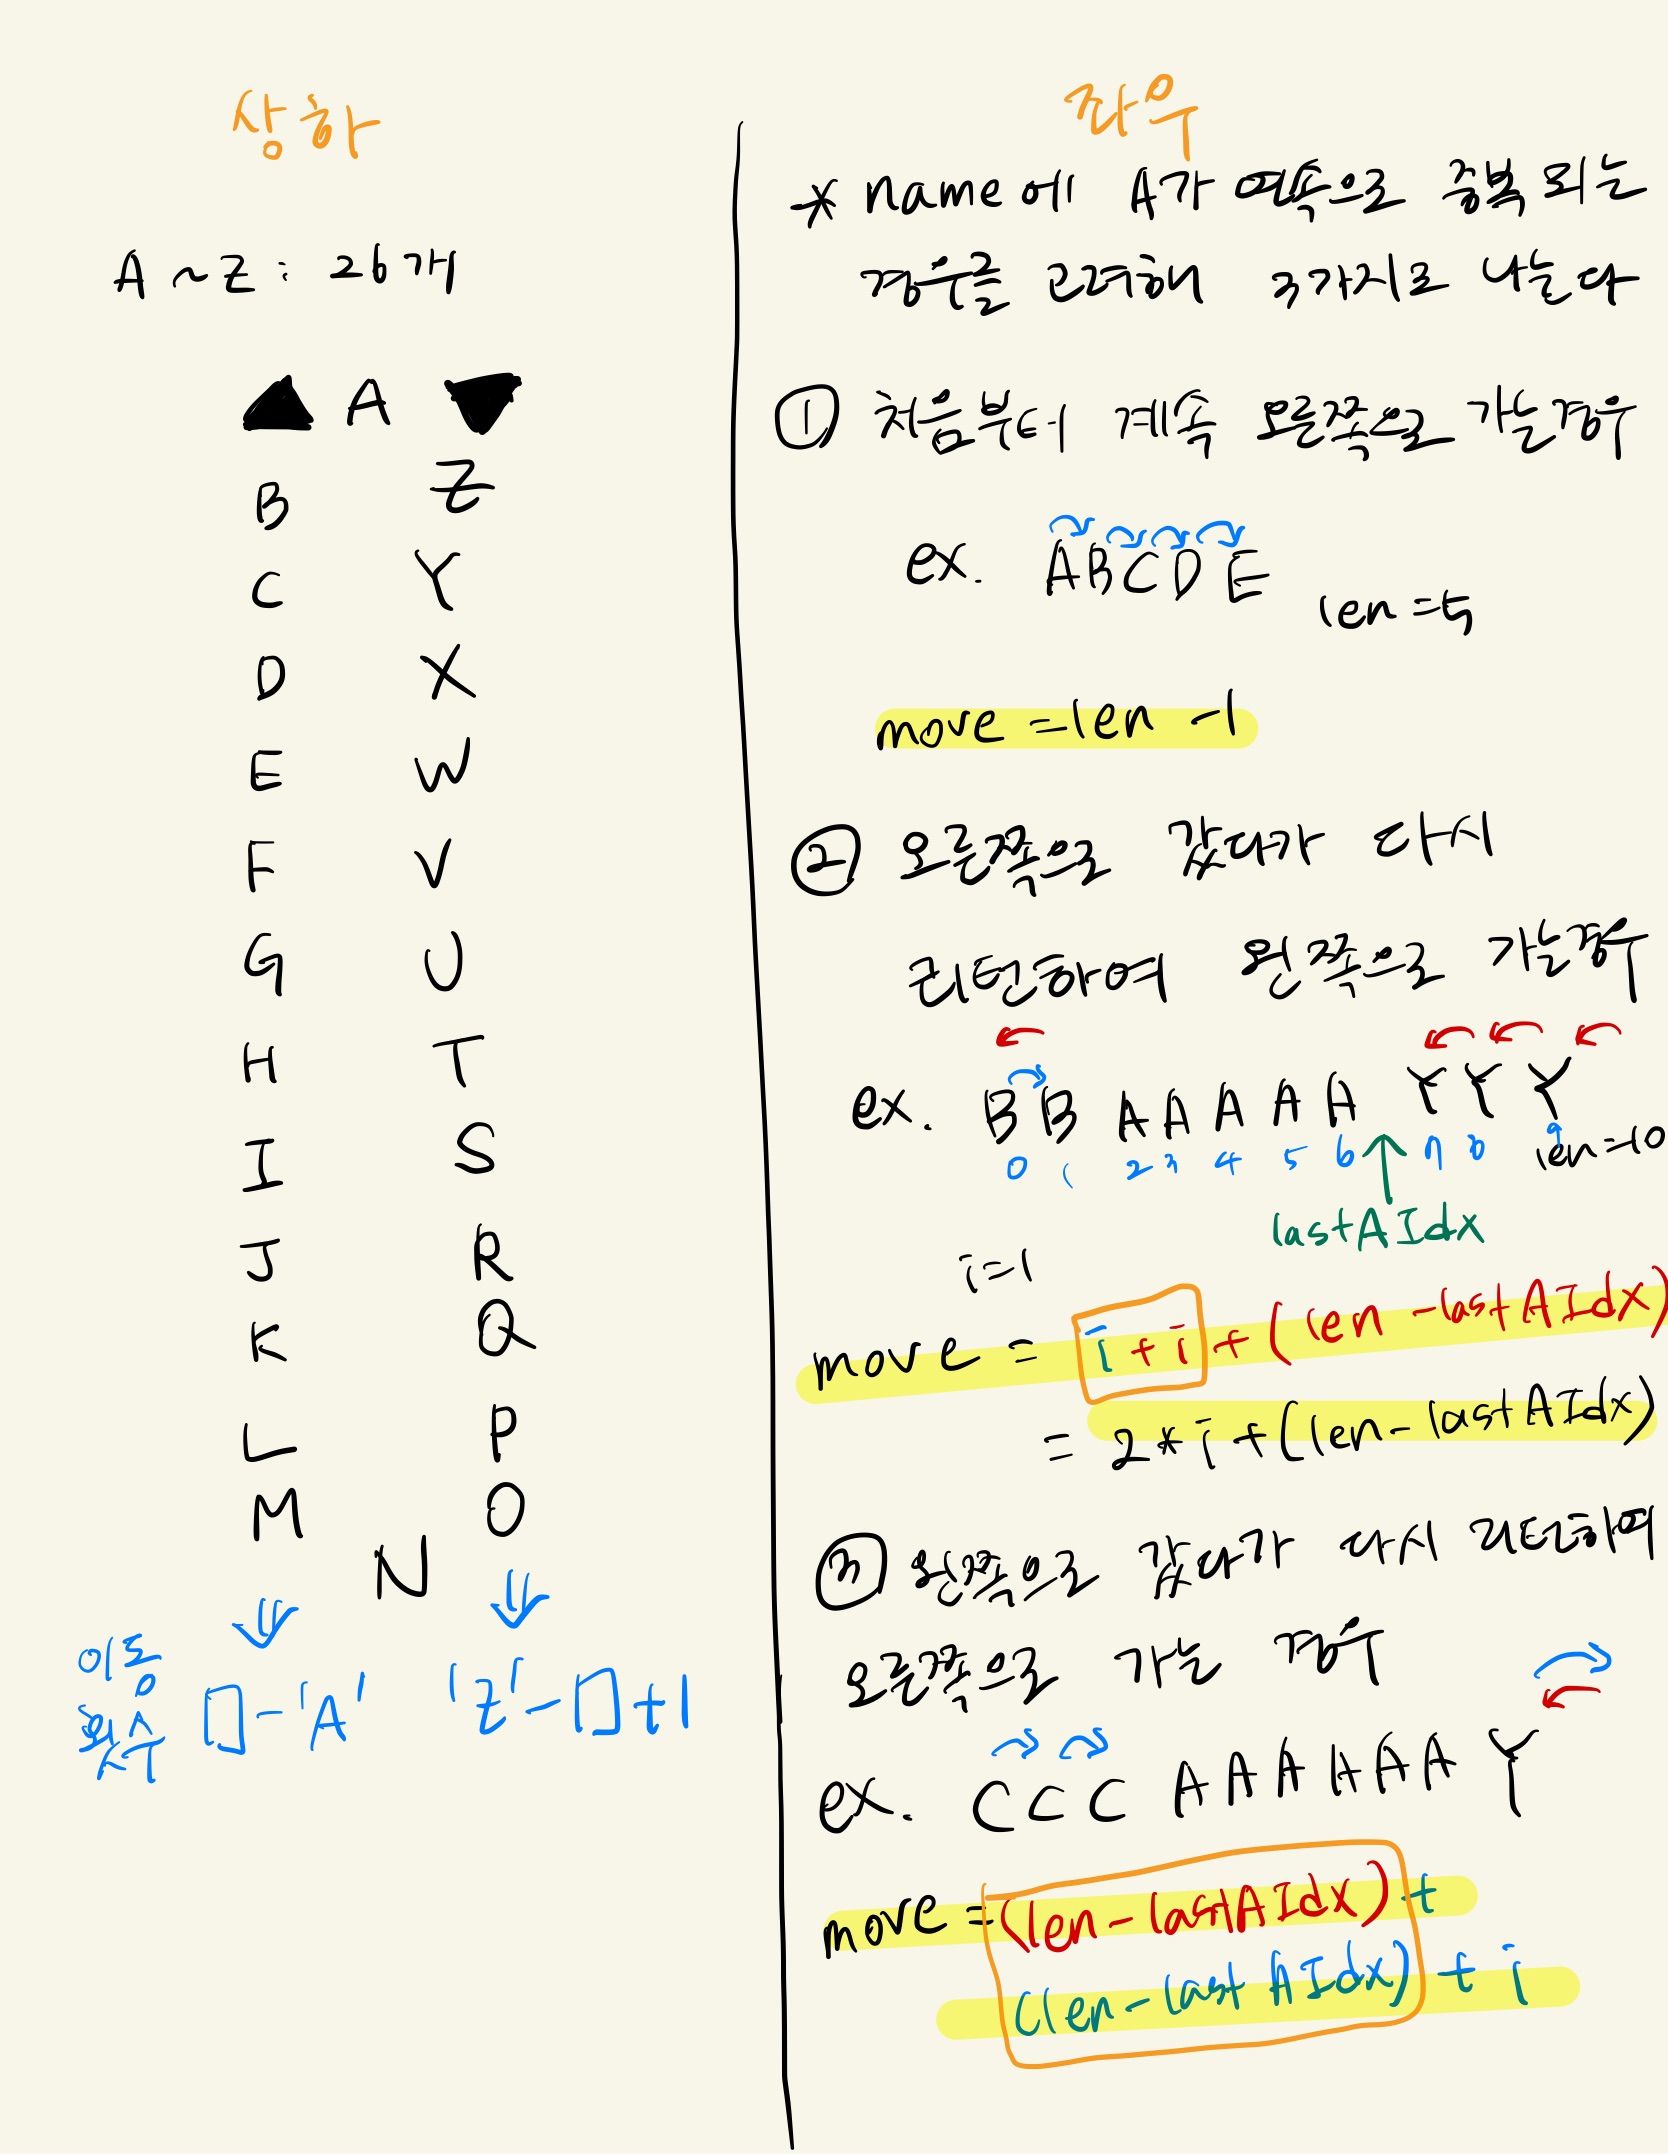 상하
A ~ Z : 26개
▲ A ▼
B Z
C Y
D X
E W
F V
G U
H T
I S
J R
K Q
L P
M O
N
⇓ ⇓
이동
횟수 □-'A' 'Z'-□+1
좌우
* name에 A가 연속으로 중복 되는
경우를 고려해 3가지로 나눈다
① 처음부터 계속 오른쪽으로 가는경우
ex. ABCDE
len=5
move = len -1
② 오른쪽으로 갔다가 다시
리턴하여 왼쪽으로 가는경우
ex. B B A A A A A Y Y Y
0 1 2 3 4 5 6 7 8 9 len=10
lastAIdx
i=1
move = i + i + (len - lastAIdx)
= 2*i+(len-lastAIdx)
③ 왼쪽으로 갔다가 다시 리턴하여
오른쪽으로 가는 경우
ex. C C C A A A A A A Y
move = (len-lastAIdx) +
(len-lastAIdx) + i